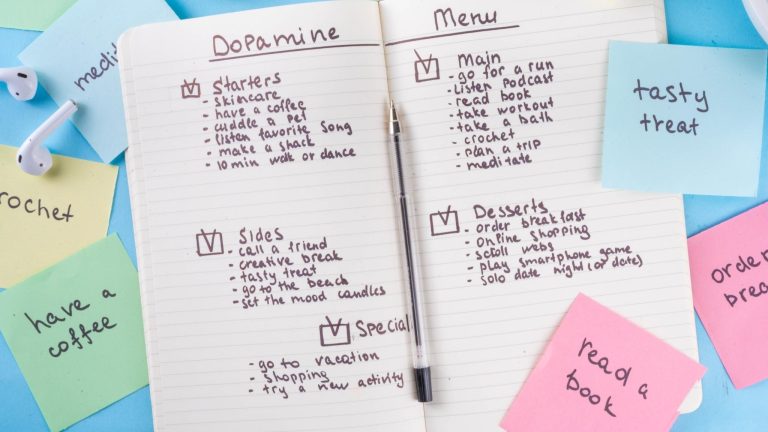 Dopamine Menu
Starters
- skincare
- have a coffee
- cuddle a pet
- listen favorite song
- make a snack
- 10 min walk or dance
Sides
- call a friend
- creative break
- tasty treat
- go to the beach
- set the mood candles
Special
- go to vacation
- shopping
- try a new activity
Main
- go for a run
- Listen Podcast
- read book
- take workout
- take a bath
- crochet
- plan a trip
- meditate
Desserts
- order breakfast
- online shopping
- scroll webs
- play smartphone game
- solo date night (or date)
medit
rochet
have a
coffee
tasty
treat
order
brea
read a
book